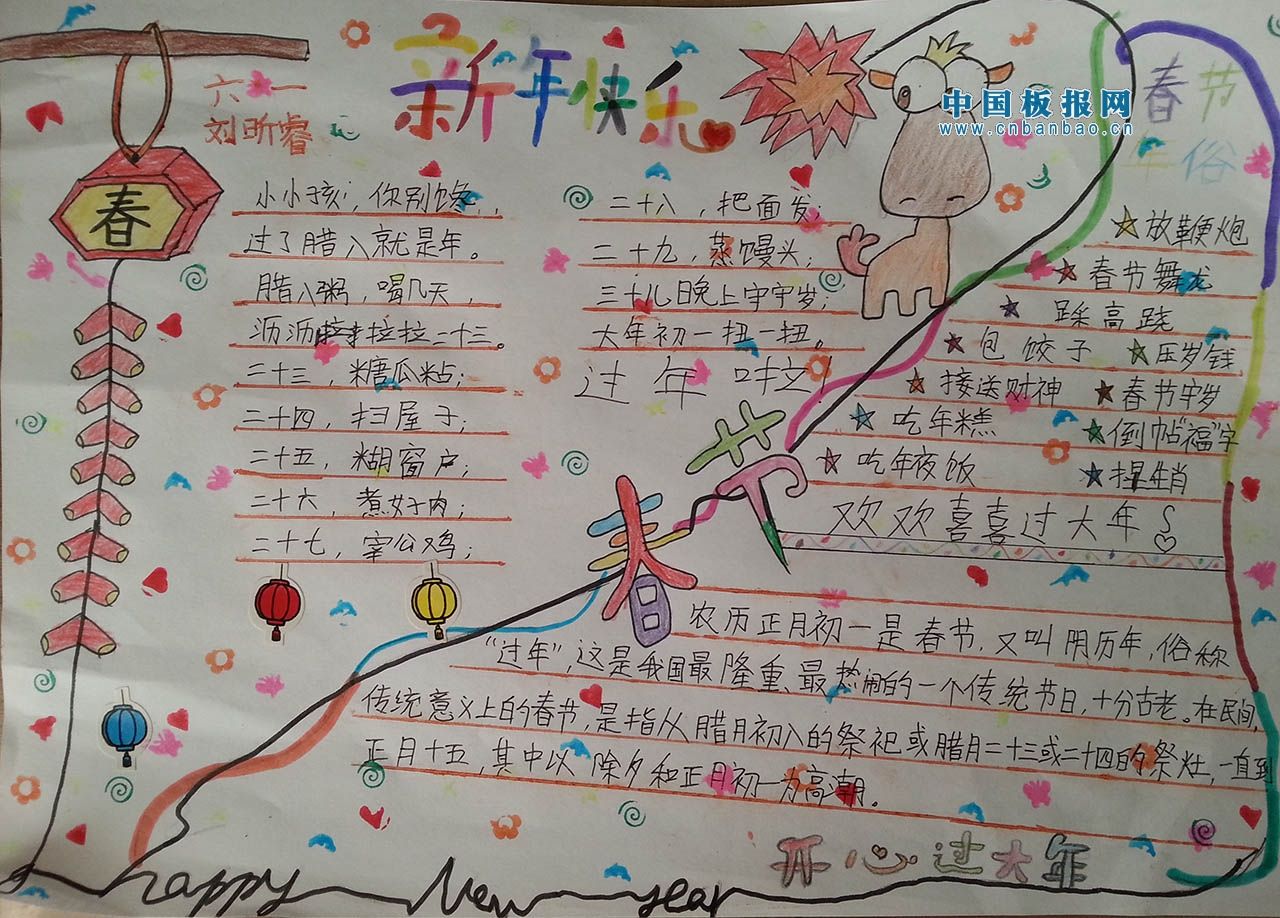 新年快乐
六一
刘昕睿
春
小小孩,你别馋,
过了腊八就是年。
腊八粥,喝几天,
沥沥拉拉二十三。
二十三,糖瓜粘;
二十四,扫屋子;
二十五,糊窗户;
二十六,煮好肉;
二十七,宰公鸡;
二十八,把面发;
二十九,蒸馒头;
三十儿日晚上守守岁;
大年初一扭一扭。
过年啦!
中国板报网
www.cnbanbao.cn
春节
年俗
放鞭炮
春节舞龙
踩高跷
包饺子 压岁钱
接送财神 春节守岁
吃年糕 倒帖"福"字
吃年夜饭 捏生肖
欢欢喜喜过大年
春节
农历正月初一是春节,又叫阴历年,俗称
"过年",这是我国最隆重、最热闹的一个传统节日,十分古老。在民间,
传统意义上的春节,是指从腊月初八的祭祀或腊月二十三或二十四的祭灶,一直到
正月十五,其中以除夕和正月初一为高潮。
开心过大年
happy New year